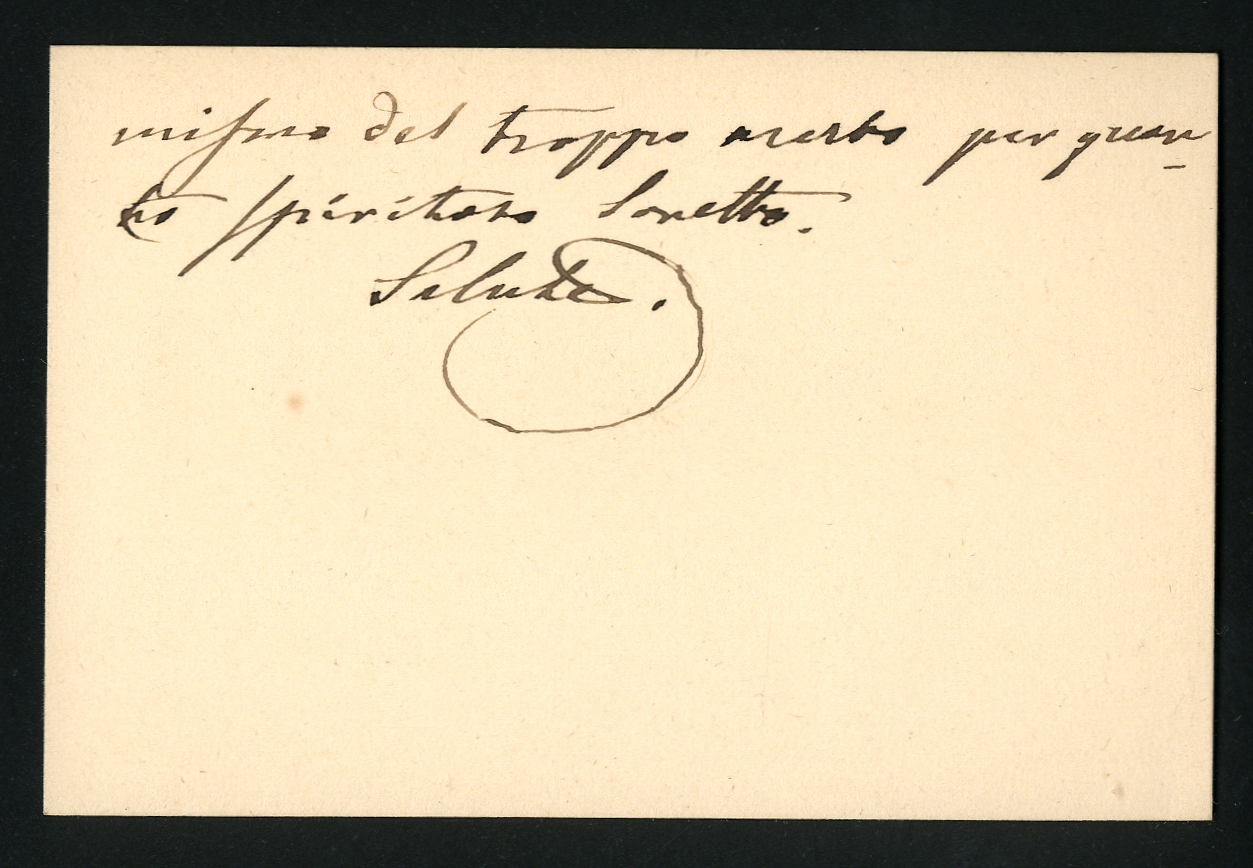 nismo del troppo acerbo per quan-
to spiritoso Sonetto.
Saluto.